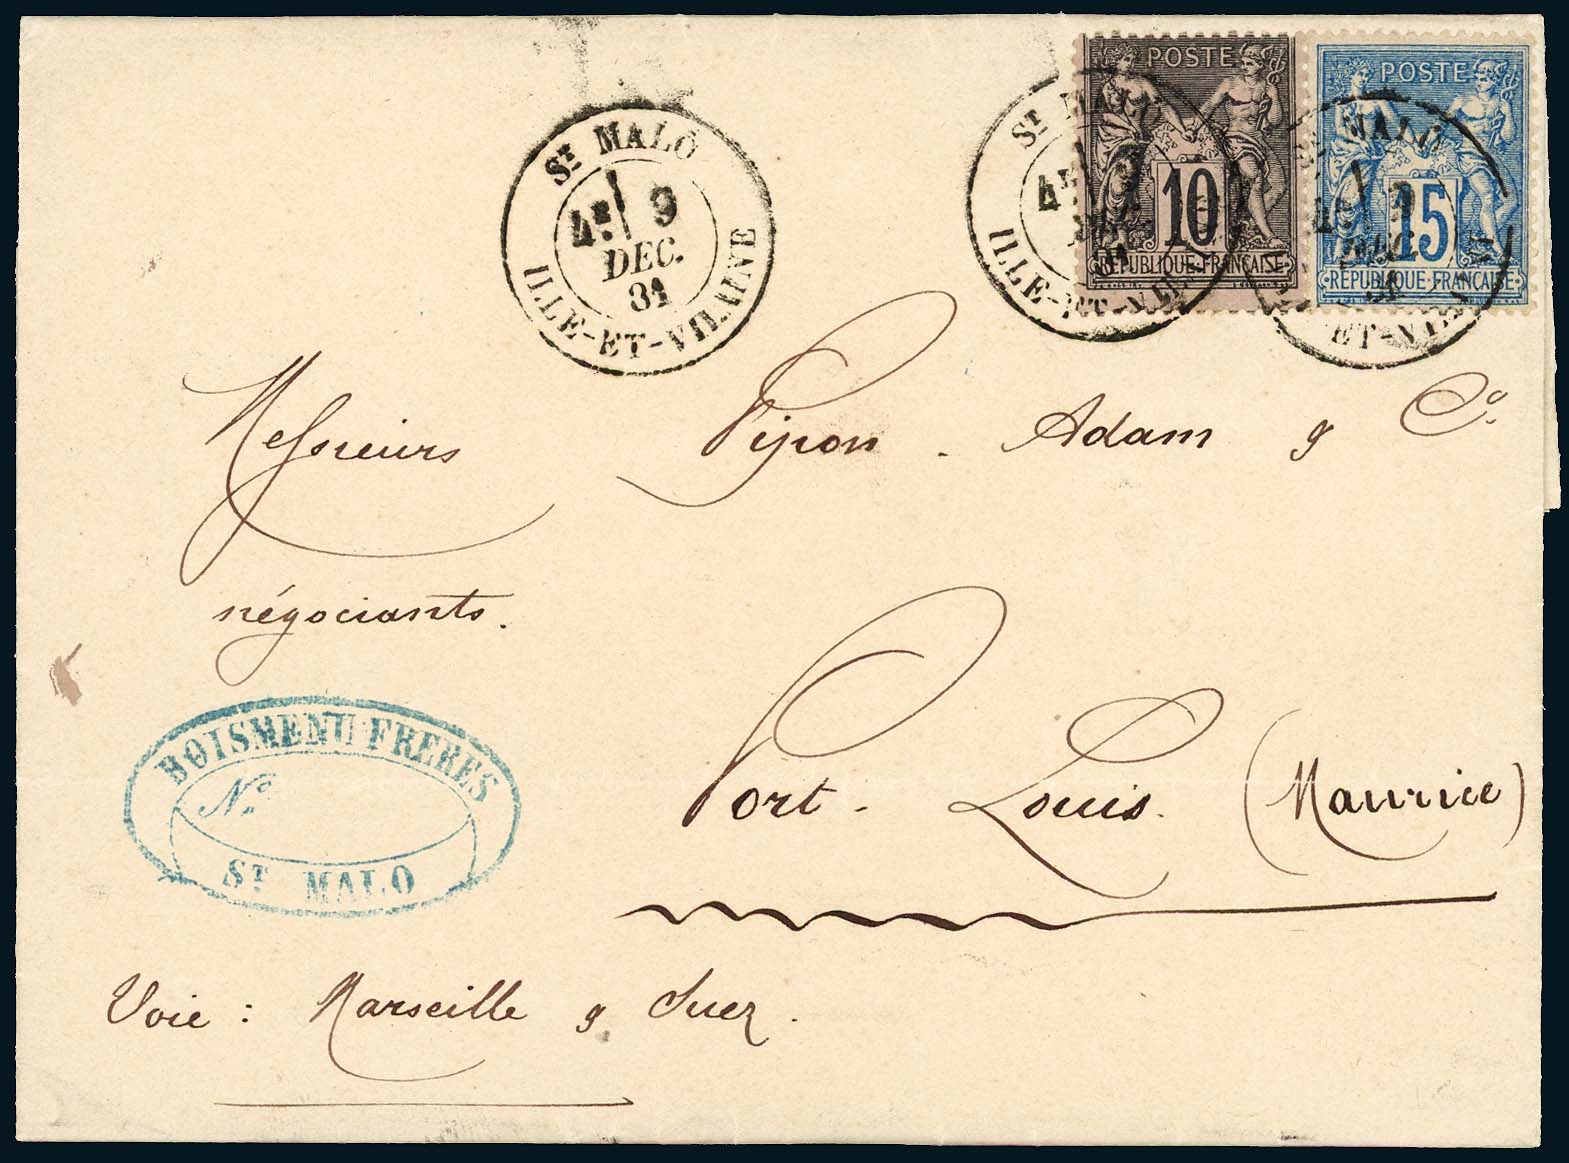 POSTE
10
RÉPUBLIQUE·FRANÇAISE
POSTE
15
RÉPUBLIQUE·FRANÇAISE
ST MALO
4E 9
DEC.
81
ILLE-ET-VILAINE
ST MALO
4E
81
ILLE-ET-VIL
MALO
ET-VIL
Messieurs Pipon. Adam & Co.
négociants.
BOISMENU FRERES
No
ST MALO
Port. Louis. (Maurice)
Voie : Marseille & Suez.